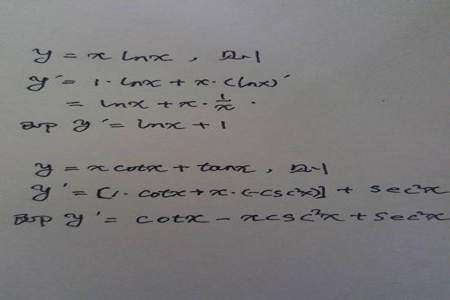 y = x lnx ,
y´= 1· lnx + x· (lnx)´
= lnx + x · 1/x .
y´= lnx + 1
y = x cotx + tanx ,
y´= [1· cotx + x· (-csc²x)] + sec²x
y´= cotx - xcsc²x + sec²x